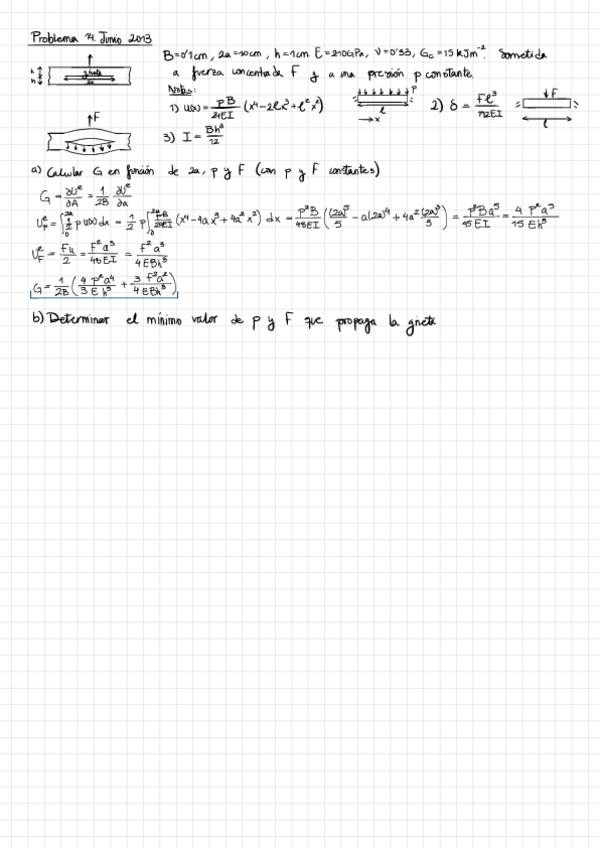 Problema 4. Junio 2013
B=0'1cm, 2a=10cm, h=1cm E=210GPa, ν=0'33, Gc=15 kJm⁻². Sometida
a fuerza concentrada F y a una presión p constante.
Notas:
1) u(x) = pB/24EI (x⁴-2lx³+l²x²)
p
l
x
2) δ = Fl³/192EI
F
l
3) I = Bh³/12
h
h
grieta
2a
F
a) Calcular G en función de 2a, p y F (con p y F constantes)
G = ∂Uᵉ/∂A = 1/2B ∂Uᵉ/∂a
Uₚᵉ = ∫₀²ᵃ 1/2 p u(x) dx = 1/2 p ∫₀²ᵃ pB/24EI (x⁴-4ax³+4a²x²) dx = p²B/48EI ((2a)⁵/5 - a(2a)⁴ + 4a²(2a)³/3) = p²Ba⁵/45EI = 4/15 p²a⁵/Eh³
U_Fᵉ = Fu/2 = F²a³/48EI = F²a³/4EBh³
G = 1/2B (4/3 p²a⁴/Eh³ + 3/4 F²a²/EBh³)
b) Determinar el mínimo valor de p y F que propaga la grieta